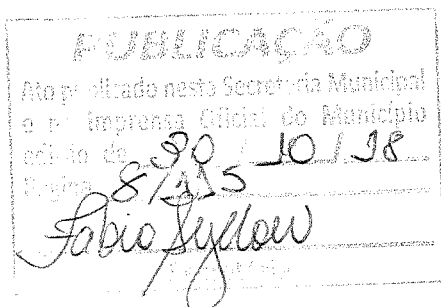 PUBLICAÇÃO
Ato publicado nesta Secretaria Municipal
e na Imprensa Oficial do Município
edição de 30 / 10 / 18
Página 8/115
Fabio